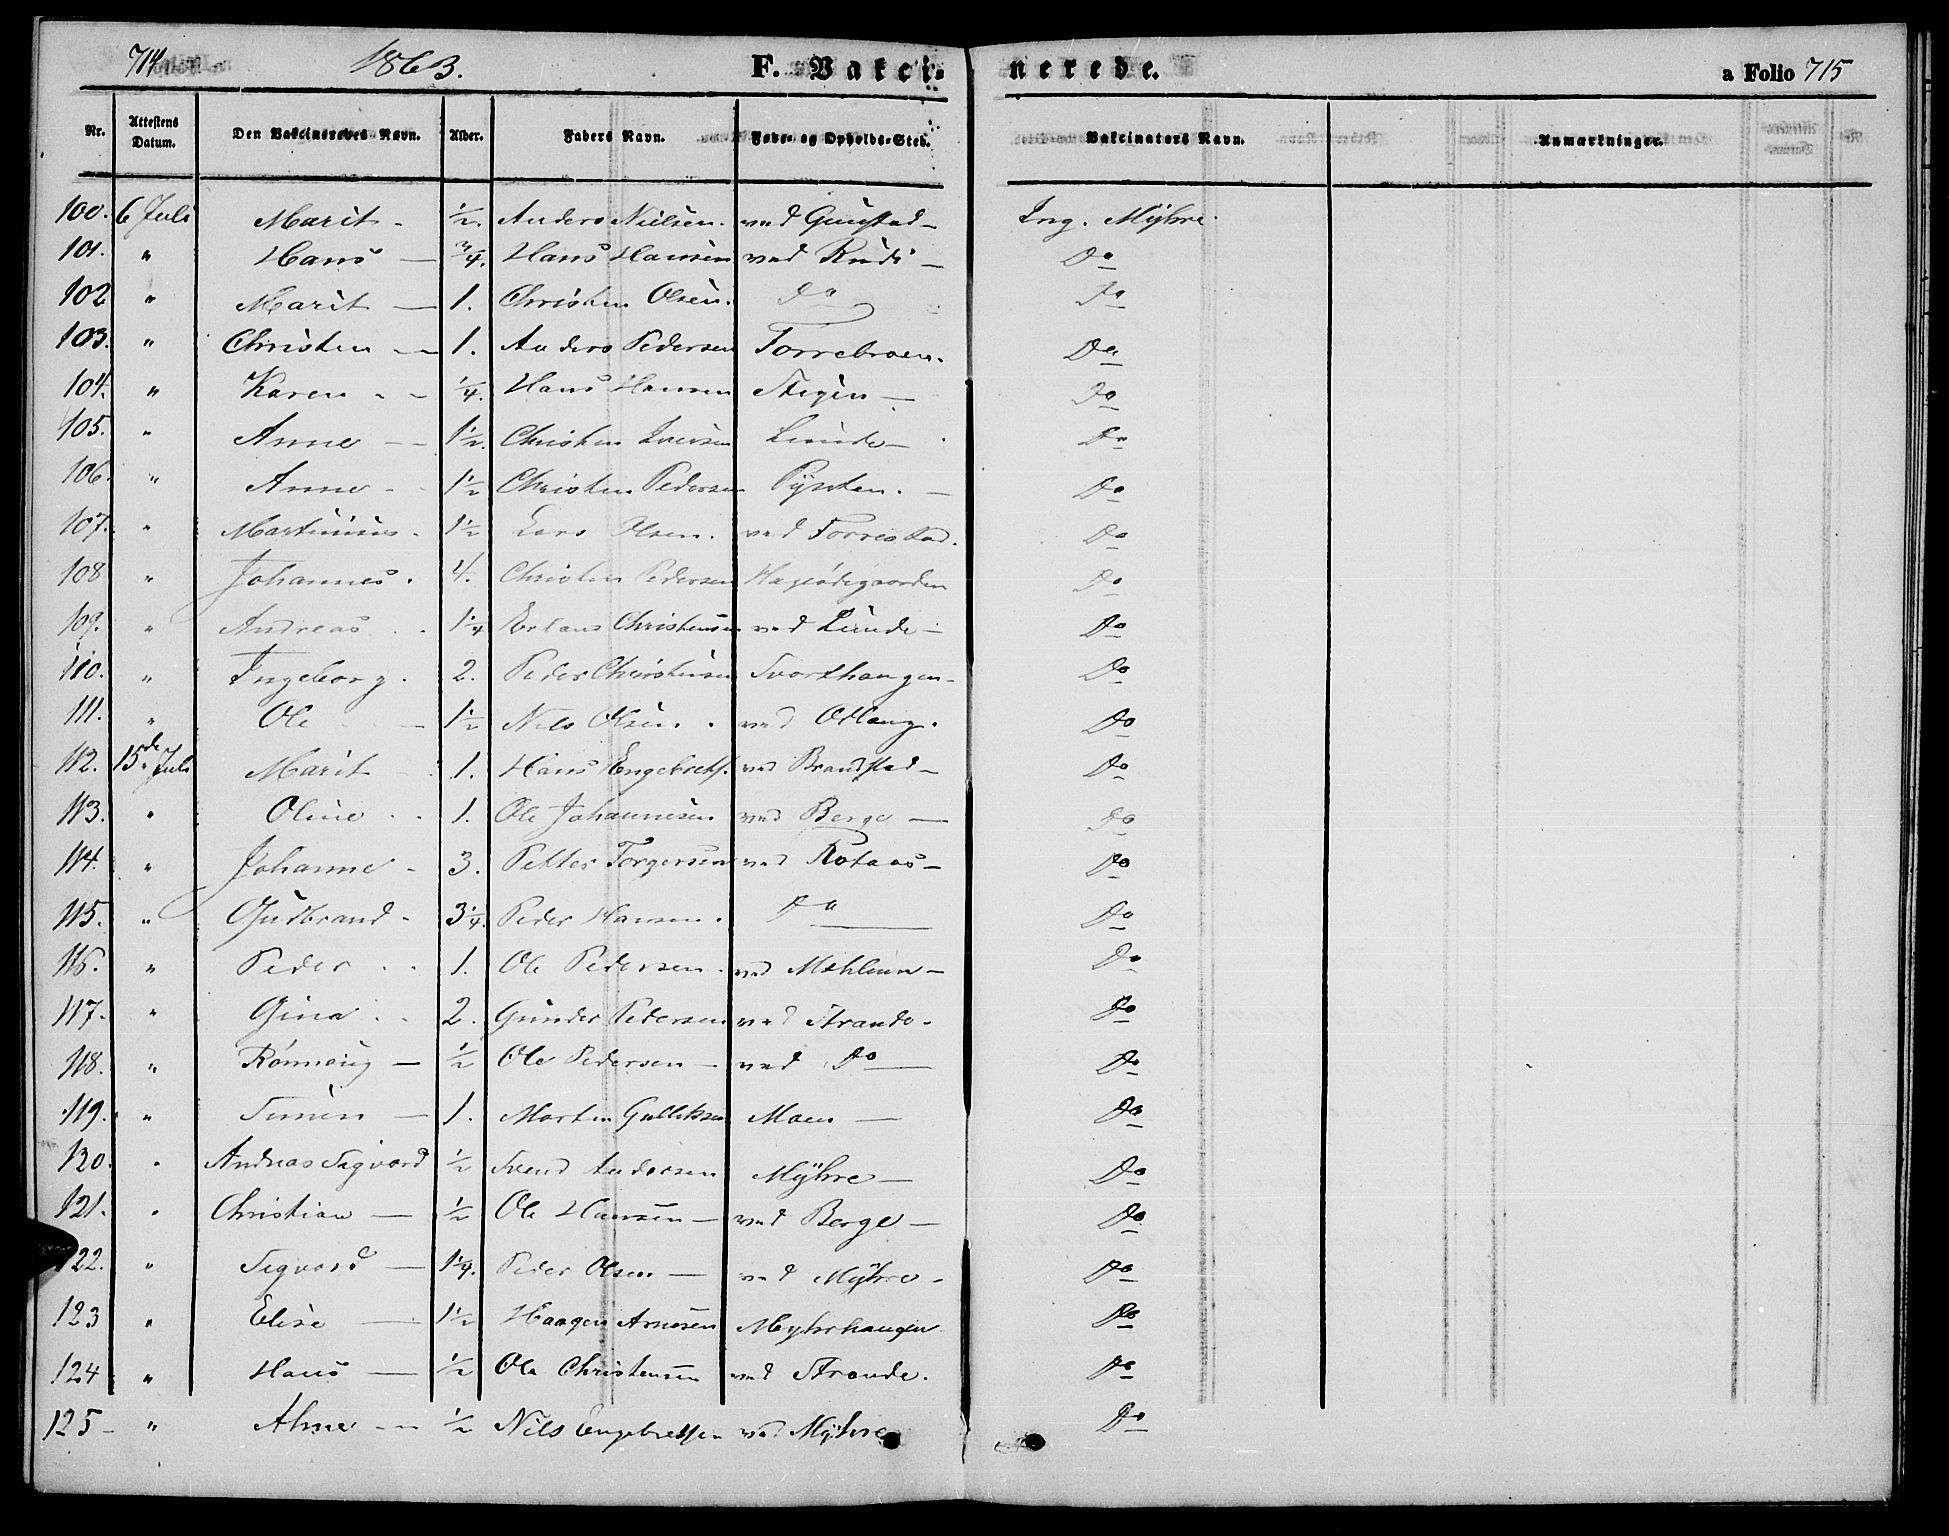 714 1863. F. Vakci- nerede. a Folio 715
Nr. Attestens Datum. Den Vakcineredes Navn. Alder. Faders Navn. Føde- og Opholds-Sted. Vakcinators Navn. Anmærkninger.
100. 6 Juli Marit - ½. Anders Nielsen. ved - Ing. Myhre.
101. " Hans — ¾. Hans Hansen ved Ruds - Do
102 " Marit — 1. Christen Olsen. Do Do
103. " Christen — 1. Anders Pedersen Torrebraen. Do
104. " Karen - - ¼. Hans Hansen Stigen — Do
105. " Anne - - 1½. Christen Iversen Lunde - Do
106. " Anne - 1½ Christen Pedersen — Do
107. " Martinus. 1½ Lars Olsen. ved Torrestad. Do
108 " Johannes. 4. Christen Pedersen Hageødegaarden Do
109. " Andreas 1¼ Erland Christensen ved Lunde - Do
110. " Ingeborg. 2. Peder Christensen Svarthaugen - Do
111. " Ole - 1½ Nils Olsen. ved Odlaug. Do
112. 15de Juli Marit 1. Hans Engebrets. ved Brandstad - Do
113. " Oline - - 1. Ole Johannesen ved Berge — Do
114. " Johanne - 3. Petter Torgersen ved Rotaas - Do
115. " Gudbrand - 3¼. Peder Hansen. Do — Do
116. " Peder - - 1. Ole Pedersen. ved Mehlum - Do
117. " Gina - - 2. Gunder Pedersen ved Strande. Do
118. " Rønnaug — ½ Ole Pedersen — ved Do — Do
119. " Simen — 1. Morten Gulliksen Moen — Do
120. " Andreas Sigvard ½ Svend Andersen Myhre — Do
121. " Christian — ½ Ole Hansen — ved Berge — Do
122. " Sigvard — 1¼. Peder Olsen — ved Myhre - Do
123 " Elise — 1½ Haagen Arnesen Myhrhaugen Do
124 " Hans — ½ Ole Christensen ved Strande. Do
125 - " - - ½ Nils Engebretsen ved Myhre Do